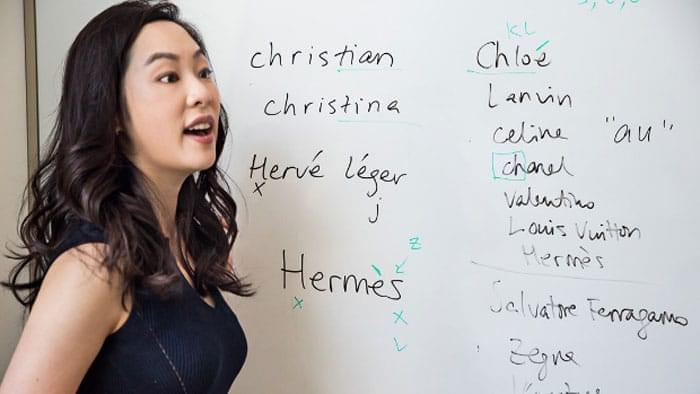 christian
christina
Hervé léger
x
j
Hermès
z
x
x
v
KL
Chloé
Lanvin
celine "au"
chanel
valentino
Louis Vuitton
Hermès
Salvatore Ferragamo
Zegna